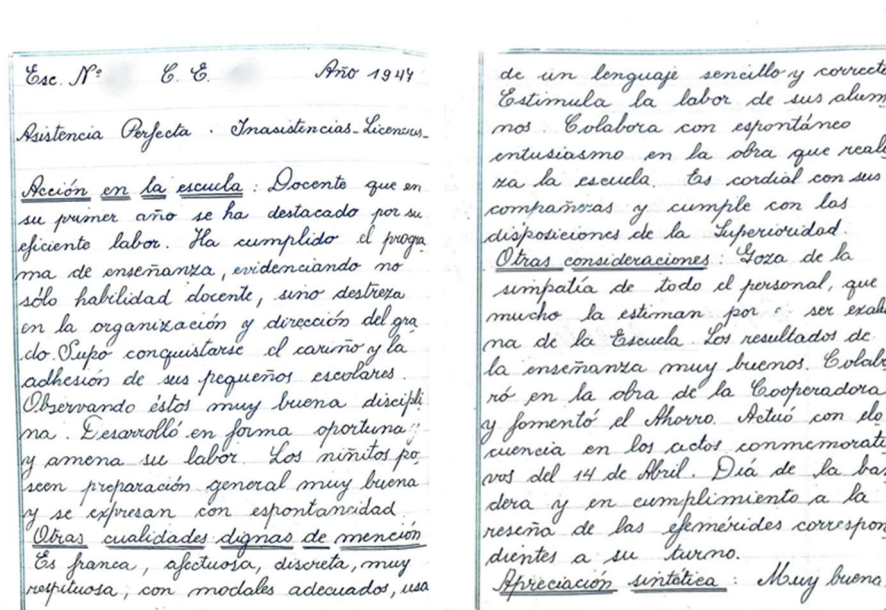 Esc. Nº C. E. Año 1947
Asistencia Perfecta . Inasistencias - Licencias -
Acción en la escuela : Docente que en
su primer año se ha destacado por su
eficiente labor. Ha cumplido el progra
ma de enseñanza, evidenciando no
sólo habilidad docente, sino destreza
en la organización y dirección del gra
do. Supo conquistarse el cariño y la
adhesión de sus pequeños escolares.
Observando éstos muy buena discipli
na. Desarrolló en forma oportuna
y amena su labor. Los niñitos po
seen preparación general muy buena
y se expresan con espontaneidad.
Otras cualidades dignas de mención
Es franca, afectuosa, discreta, muy
respetuosa; con modales adecuados, usa
de un lenguaje sencillo y correcto
Estimula la labor de sus alum
nos. Colabora con espontáneo
entusiasmo en la obra que reali
za la escuela. Es cordial con sus
compañeras y cumple con las
disposiciones de la Superioridad.
Otras consideraciones : Goza de la
simpatía de todo el personal, que
mucho la estiman por ser exalum
na de la Escuela. Los resultados de
la enseñanza muy buenos. Colabo
ró en la obra de la Cooperadora
y fomentó el Ahorro. Actuó con elo
cuencia en los actos conmemorati
vos del 14 de Abril. Día de la ban
dera y en cumplimiento a la
reseña de las efemérides correspon
dientes a su turno.
Apreciación sintética : Muy buena